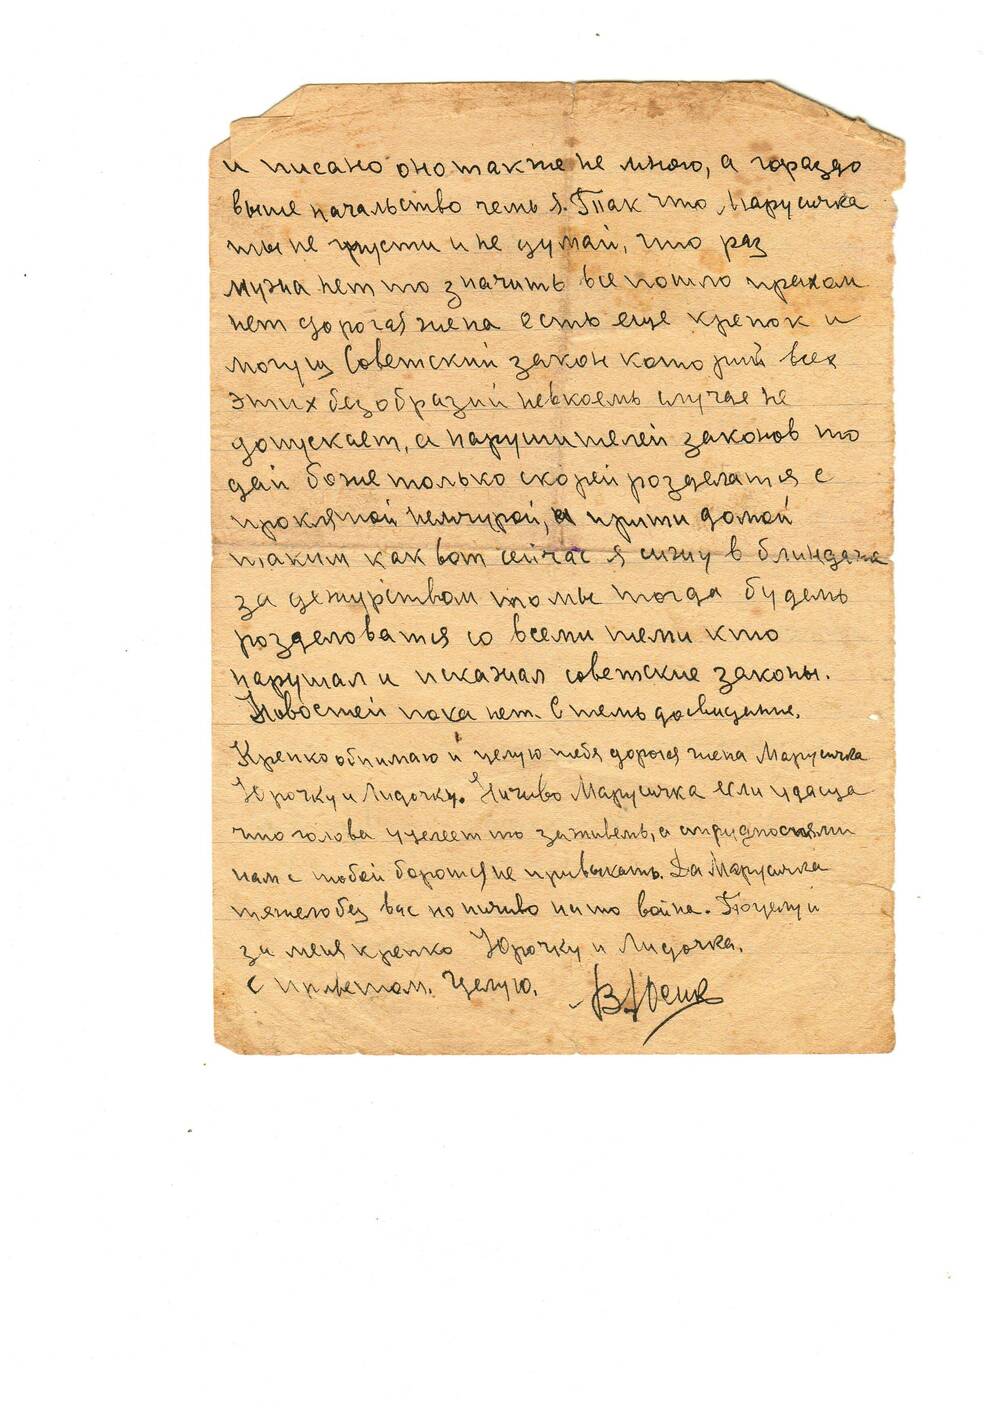 и писано оно также не мною, а гораздо
выше начальство чемь я. Так что Марусичка
ты не грусти и не думай, что раз
мужа нет то значить все пошло прахом
нет дорогая жена есть еще крепок и
могущ Советский закон которий всех
этих безобразий невкоемь случае не
допускает, а нарушителей законов то
дай боже только скорей розделатся с
проклятой немчурой, и прити домой
таким как вот сейчас я сижу в блиндаже
за дежурством то мы тогда будемь
розделоватся со всеми теми кто
нарушал и искажал советские законы.
Новостей пока нет. С темь досвидение.
Крепко обнимаю и целую тебя дорогая жена Марусичка
Юрочку и Лидочку. Ничиво Марусичка если удасца
что голова уцелеет то заживемь, а с трудностями
нам с тобой боротся не привыкать. Да Марусичка
тяжело без вас но ничиво на то война. Поцелуй
за меня крепко Юрочку и Лидочка.
С приветом. Целую.